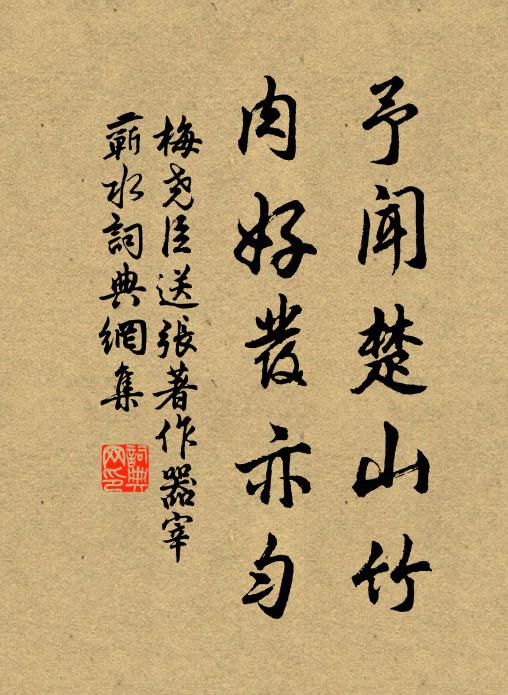 予聞楚山竹
肉好發亦勻
梅堯臣送張著作器宰
蘄水詞典網集
詞典
网印